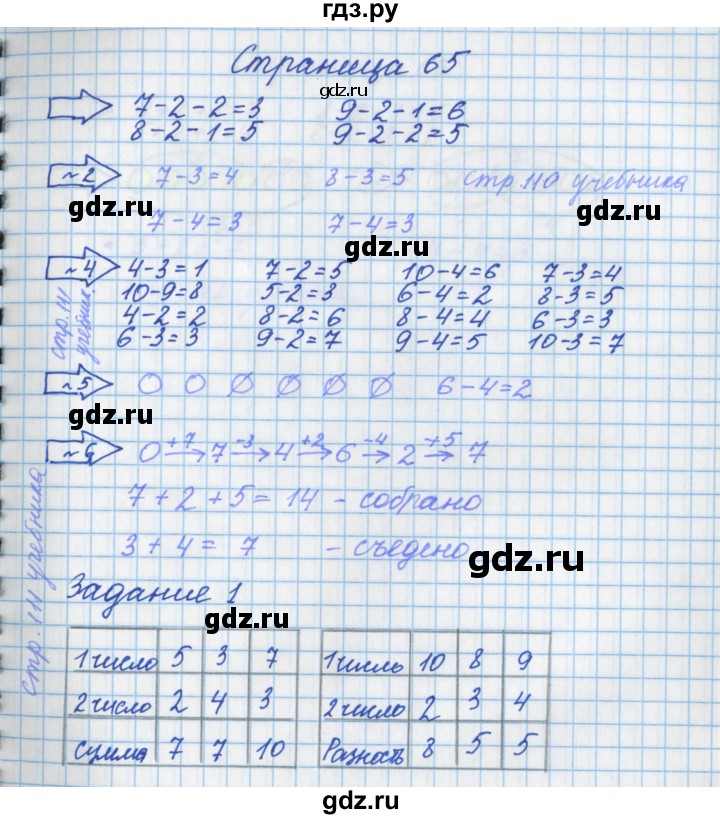 гдз.ру
Страница 65
gdz.ru
7-2-2=3 9-2-1=6
8-2-1=5 9-2-2=5
~2 7-3=4 8-3=5 стр.110 учебника
gdz.ru gdz.ru
7-4=3 7-4=3
gdz.ru
~4 4-3=1 7-2=5 10-4=6 7-3=4
10-9=8 5-2=3 6-4=2 8-3=5
4-2=2 8-2=6 8-4=4 6-3=3
6-3=3 9-2=7 9-4=5 10-3=7
стр.111 учебник
~5 0 0 Ø Ø Ø Ø 6-4=2
gdz.ru gdz.ru
~6 0 +7→ 7 -3→ 4 +2→ 6 -4→ 2 +5→ 7
7+2+5=14 - собрано
3+4=7 - съедено
gdz.ru
стр.111 учебника
Задание 1
gdz.ru
1 число 5 3 7 1 число 10 8 9
2 число 2 4 3 2 число 2 3 4
сумма 7 7 10 Разность 8 5 5
gdz.ru gdz.ru
gdz.ru